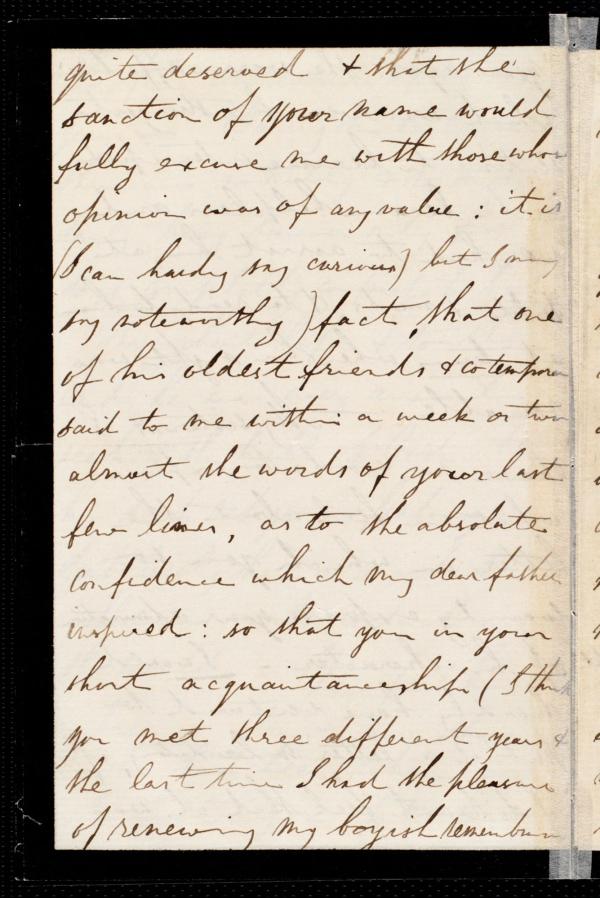 quite deserved & that the
sanction of your name would
fully excuse me with those whose
opinion was of any value : it is
(I can hardly say curious) but I may
say noteworthy) fact, that one
of his oldest friends & cotempora
said to me within a week or two
almost the words of your last
few lines, as to the absolute
confidence which my dear father
inspired : so that you in your
short acquaintanceship (I think
you met three different years &
the last time I had the pleasure
of renewing my boyish remembran